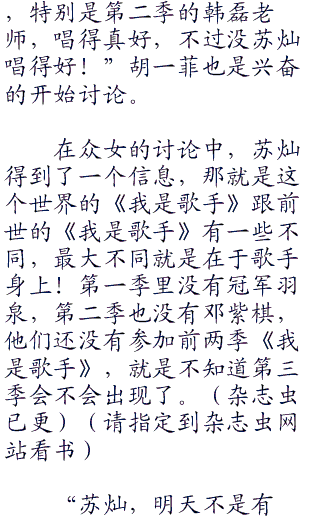 ，特别是第二季的韩磊老
师，唱得真好，不过没苏灿
唱得好！”胡一菲也是兴奋
的开始讨论。
在众女的讨论中，苏灿
得到了一个信息，那就是这
个世界的《我是歌手》跟前
世的《我是歌手》有一些不
同，最大不同就是在于歌手
身上！第一季里没有冠军羽
泉，第二季也没有邓紫棋，
他们还没有参加前两季《我
是歌手》，就是不知道第三
季会不会出现了。（杂志虫
已更）（请指定到杂志虫网
站看书）
“苏灿，明天不是有